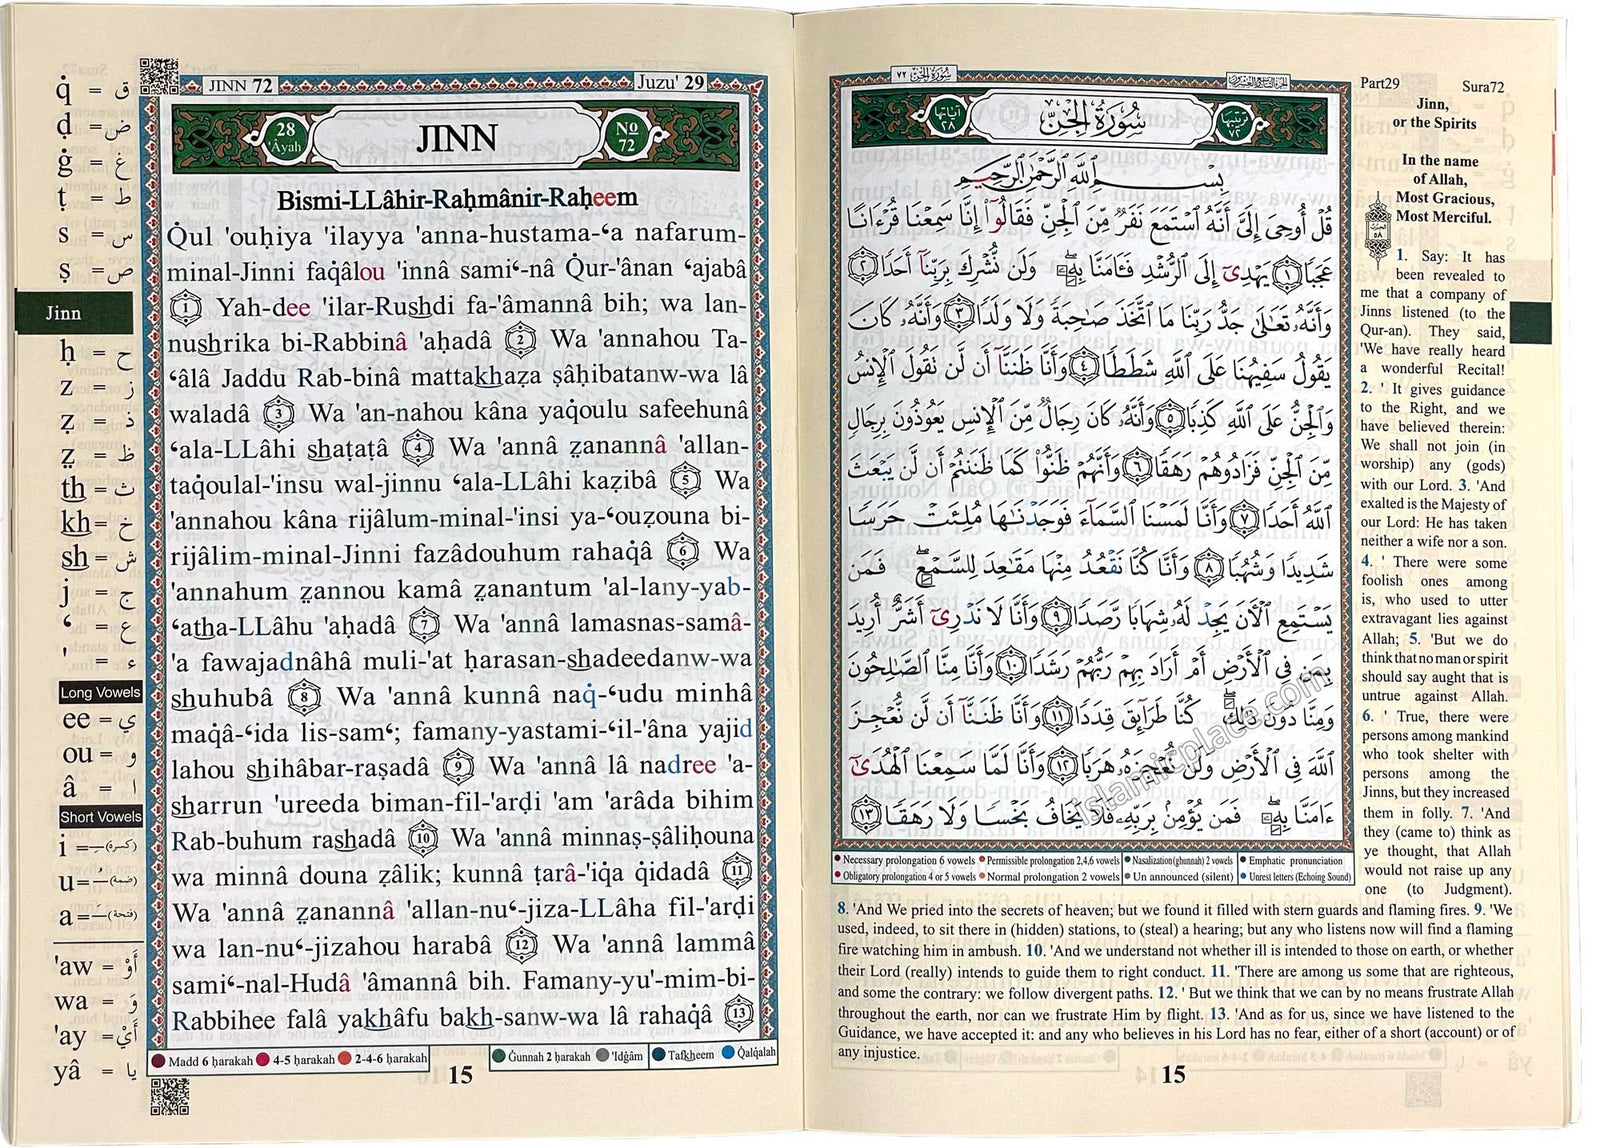 q̇ = ق
ḍ = ض
ġ = غ
ṭ = ط
s = س
ṣ = ص
Jinn
ḥ = ح
z = ز
ẓ = ذ
ẓ̤ = ظ
th = ث
kh = خ
sh = ش
j = ج
‘ = ع
' = ء
Long Vowels
ee = ي
ou = و
â = ا
Short Vowels
i = (كسرة)
u = (ضمة)
a = (فتحة)
'aw = أَوْ
wa = وَ
'ay = أَيْ
yâ = يا
JINN 72
Juzu' 29
28 'Âyah
JINN
No 72
Bismi-LLâhir-Raḥmânir-Raḥeem
Q̇ul 'ouḥiya 'ilayya 'anna-hustama-‘a nafarum-
minal-Jinni faq̇âlou 'innâ sami‘-nâ Q̇ur-'ânan ‘ajabâ
1 Yah-dee 'ilar-Rushdi fa-'âmannâ bih; wa lan-
nushrika bi-Rabbinâ 'aḥadâ 2 Wa 'annahou Ta-
‘âlâ Jaddu Rab-binâ mattakhaẓa ṣâḥibatanw-wa lâ
waladâ 3 Wa 'an-nahou kâna yaq̇oulu safeehunâ
‘ala-LLâhi shaṭaṭâ 4 Wa 'annâ ẓ̤anannâ 'allan-
taq̇oulal-'insu wal-jinnu ‘ala-LLâhi kaẓibâ 5 Wa
'annahou kâna rijâlum-minal-'insi ya-‘ouẓouna bi-
rijâlim-minal-Jinni fazâdouhum rahaq̇â 6 Wa
'annahum ẓ̤annou kamâ ẓ̤anantum 'al-lany-yab-
‘atha-LLâhu 'aḥadâ 7 Wa 'annâ lamasnas-samâ-
'a fawajadnâhâ muli-'at ḥarasan-shadeedanw-wa
shuhubâ 8 Wa 'annâ kunnâ naq̇-‘udu minhâ
maq̇â-‘ida lis-sam‘; famany-yastami-‘il-'âna yajid
lahou shihâbar-raṣadâ 9 Wa 'annâ lâ nadree 'a-
sharrun 'ureeda biman-fil-'arḍi 'am 'arâda bihim
Rab-buhum rashadâ 10 Wa 'annâ minnaṣ-ṣâliḥouna
wa minnâ douna ẓâlik; kunnâ ṭarâ-'iq̇a q̇idadâ 11
Wa 'annâ ẓ̤anannâ 'allan-nu‘-jiza-LLâha fil-'arḍi
wa lan-nu‘-jizahou harabâ 12 Wa 'annâ lammâ
sami‘-nal-Hudâ 'âmannâ bih. Famany-yu'-mim-bi-
Rabbihee falâ yakhâfu bakh-sanw-wa lâ rahaq̇â 13
Madd 6 ḥarakah 4-5 ḥarakah 2-4-6 ḥarakah
Ġunnah 2 ḥarakah 'Idġâm Tafkheem Q̇alq̇alah
15
سُورَةُ الْجِنِّ ٧٢
الجزء التاسع والعشرون
آياتها ٢٨
سُورَةُ الْجِنِّ
ترتيبها ٧٢
بِسْمِ اللَّهِ الرَّحْمَٰنِ الرَّحِيمِ
قُلْ أُوحِيَ إِلَيَّ أَنَّهُ ٱسْتَمَعَ نَفَرٌ مِّنَ ٱلْجِنِّ فَقَالُوٓا۟ إِنَّا سَمِعْنَا قُرْءَانًا
عَجَبًا ١ يَهْدِىٓ إِلَى ٱلرُّشْدِ فَـَٔامَنَّا بِهِۦ ۖ وَلَن نُّشْرِكَ بِرَبِّنَآ أَحَدًا ٢
وَأَنَّهُۥ تَعَٰلَىٰ جَدُّ رَبِّنَا مَا ٱتَّخَذَ صَٰحِبَةً وَلَا وَلَدًا ٣ وَأَنَّهُۥ كَانَ
يَقُولُ سَفِيهُنَا عَلَى ٱللَّهِ شَطَطًا ٤ وَأَنَّا ظَنَنَّآ أَن لَّن تَقُولَ ٱلْإِنسُ
وَٱلْجِنُّ عَلَى ٱللَّهِ كَذِبًا ٥ وَأَنَّهُۥ كَانَ رِجَالٌ مِّنَ ٱلْإِنسِ يَعُوذُونَ بِرِجَالٍ
مِّنَ ٱلْجِنِّ فَزَادُوهُمْ رَهَقًا ٦ وَأَنَّهُمْ ظَنُّوا۟ كَمَا ظَنَنتُمْ أَن لَّن يَبْعَثَ
ٱللَّهُ أَحَدًا ٧ وَأَنَّا لَمَسْنَا ٱلسَّمَآءَ فَوَجَدْنَٰهَا مُلِئَتْ حَرَسًا
شَدِيدًا وَشُهُبًا ٨ وَأَنَّا كُنَّا نَقْعُدُ مِنْهَا مَقَٰعِدَ لِلسَّمْعِ ۖ فَمَن
يَسْتَمِعِ ٱلْـَٔانَ يَجِدْ لَهُۥ شِهَابًا رَّصَدًا ٩ وَأَنَّا لَا نَدْرِىٓ أَشَرٌّ أُرِيدَ
بِمَن فِى ٱلْأَرْضِ أَمْ أَرَادَ بِهِمْ رَبُّهُمْ رَشَدًا ١٠ وَأَنَّا مِنَّا ٱلصَّٰلِحُونَ
وَمِنَّا دُونَ ذَٰلِكَ ۖ كُنَّا طَرَآئِقَ قِدَدًا ١١ وَأَنَّا ظَنَنَّآ أَن لَّن نُّعْجِزَ
ٱللَّهَ فِى ٱلْأَرْضِ وَلَن نُّعْجِزَهُۥ هَرَبًا ١٢ وَأَنَّا لَمَّا سَمِعْنَا ٱلْهُدَىٰٓ
ءَامَنَّا بِهِۦ ۖ فَمَن يُؤْمِنۢ بِرَبِّهِۦ فَلَا يَخَافُ بَخْسًا وَلَا رَهَقًا ١٣
islamicplace.com
Necessary prolongation 6 vowels Permissible prolongation 2,4,6 vowels Nasalization (ghunnah) 2 vowels Emphatic pronunciation
Obligatory prolongation 4 or 5 vowels Normal prolongation 2 vowels Un announced (silent) Unrest letters (Echoing Sound)
Part29 Sura72
Jinn,
or the Spirits
In the name
of Allah,
Most Gracious,
Most Merciful.
1. Say: It has
been revealed to
me that a company of
Jinns listened (to the
Qur-an). They said,
'We have really heard
a wonderful Recital!
2. ' It gives guidance
to the Right, and we
have believed therein:
We shall not join (in
worship) any (gods)
with our Lord. 3. 'And
exalted is the Majesty of
our Lord: He has taken
neither a wife nor a son.
4. ' There were some
foolish ones among
us, who used to utter
extravagant lies against
Allah; 5. 'But we do
think that no man or spirit
should say aught that is
untrue against Allah.
6. ' True, there were
persons among mankind
who took shelter with
persons among the
Jinns, but they increased
them in folly. 7. 'And
they (came to) think as
ye thought, that Allah
would not raise up any
one (to Judgment).
8. 'And We pried into the secrets of heaven; but we found it filled with stern guards and flaming fires. 9. 'We
used, indeed, to sit there in (hidden) stations, to (steal) a hearing; but any who listens now will find a flaming
fire watching him in ambush. 10. 'And we understand not whether ill is intended to those on earth, or whether
their Lord (really) intends to guide them to right conduct. 11. 'There are among us some that are righteous,
and some the contrary: we follow divergent paths. 12. ' But we think that we can by no means frustrate Allah
throughout the earth, nor can we frustrate Him by flight. 13. 'And as for us, since we have listened to the
Guidance, we have accepted it: and any who believes in his Lord has no fear, either of a short (account) or of
any injustice.
15